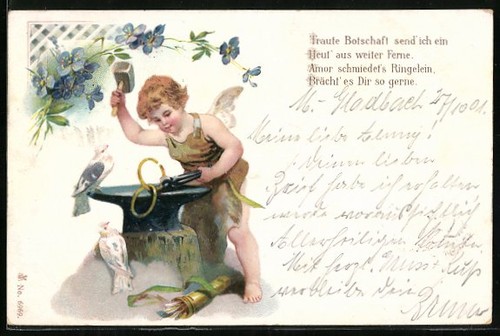 Traute Botschaft send' ich ein
Heut' aus weiter Ferne.
Amor schmiedet's Ringelein,
Brächt' es Dir so gerne.
M.-Gladbach 27/10 01.
Meine liebe Jenny!
Deinen lieben
Brief habe ich erhalten
werde voraussichtlich
Allerheiligen
Mit herzl. Gruss u. Kuss
verbleibe Dein
No. 6969.